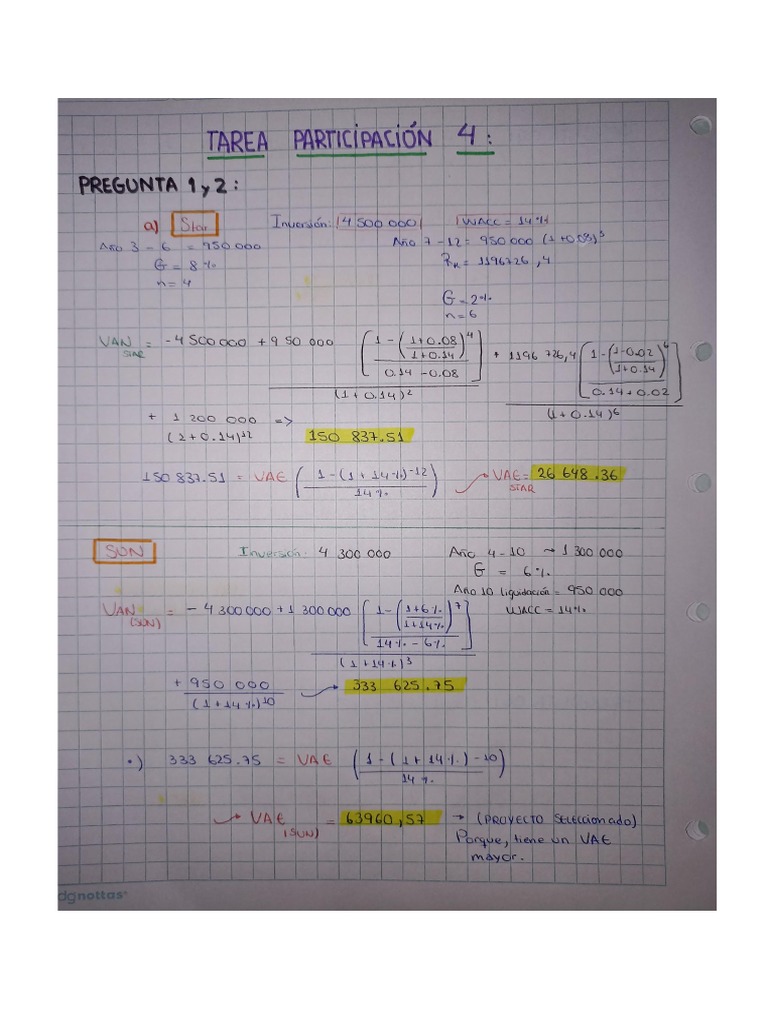 TAREA PARTICIPACIÓN 4:
PREGUNTA 1 y 2:
a) Star Inversión: |4 500 000| |WACC = 14%|
Año 3 - 6 = 950 000 Año 7 - 12 = 950 000 (1+0.08)³
G = 8% Rn = 1196726,4
n = 4
G = 2%
n = 6
VAN STAR = -4 500 000 + 950 000 [1 - ((1+0.08)/(1+0.14))^4 / (0.14 - 0.08)] / (1+0.14)^2 + 1196 726,4 [1 - ((1-0.02)/(1+0.14))^6 / (0.14 + 0.02)] / (1+0.14)^6
+ 1 200 000 / (2+0.14)^12 => 150 837.51
150 837.51 = VAE (1 - (1 + 14%)^-12 / 14%) VAE STAR = 26 648.36
SUN Inversión: 4 300 000 Año 4 - 10 → 1 300 000
G = 6%
Año 10 liquidación = 950 000
WACC = 14%
VAN (SUN) = - 4 300 000 + 1 300 000 [1 - ((1+6%)/(1+14%))^7 / (14% - 6%)] / (1+14%)^3
+ 950 000 / (1+14%)^10 → 333 625.75
•) 333 625.75 = VAE (1 - (1 + 14%) - 10 / 14%)
→ VAE (SUN) = 63960,57 → (PROYECTO Seleccionado)
Porque, tiene un VAE
mayor.
dgnottas